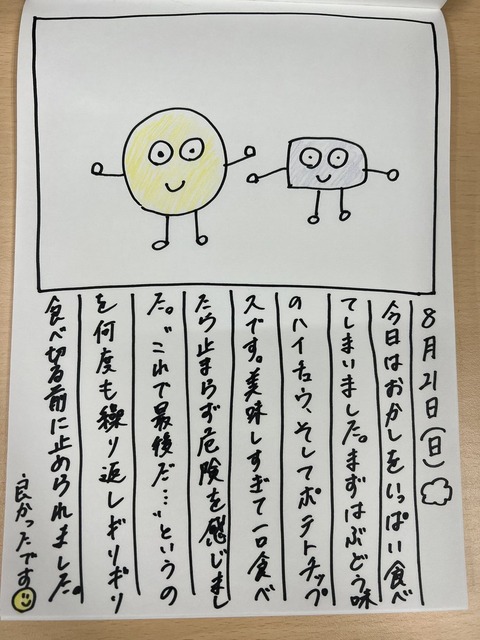 8月21日(日)
今日はおかしをいっぱい食べ
てしまいました。まずはぶどう味
のハイチュウ、そしてポテトチップ
スです。美味しすぎて一口食べ
たら止まらず危険を感じまし
た。“これで最後だ…”というの
を何度も繰り返しギリギリ
食べ切る前に止められました。
良かったです